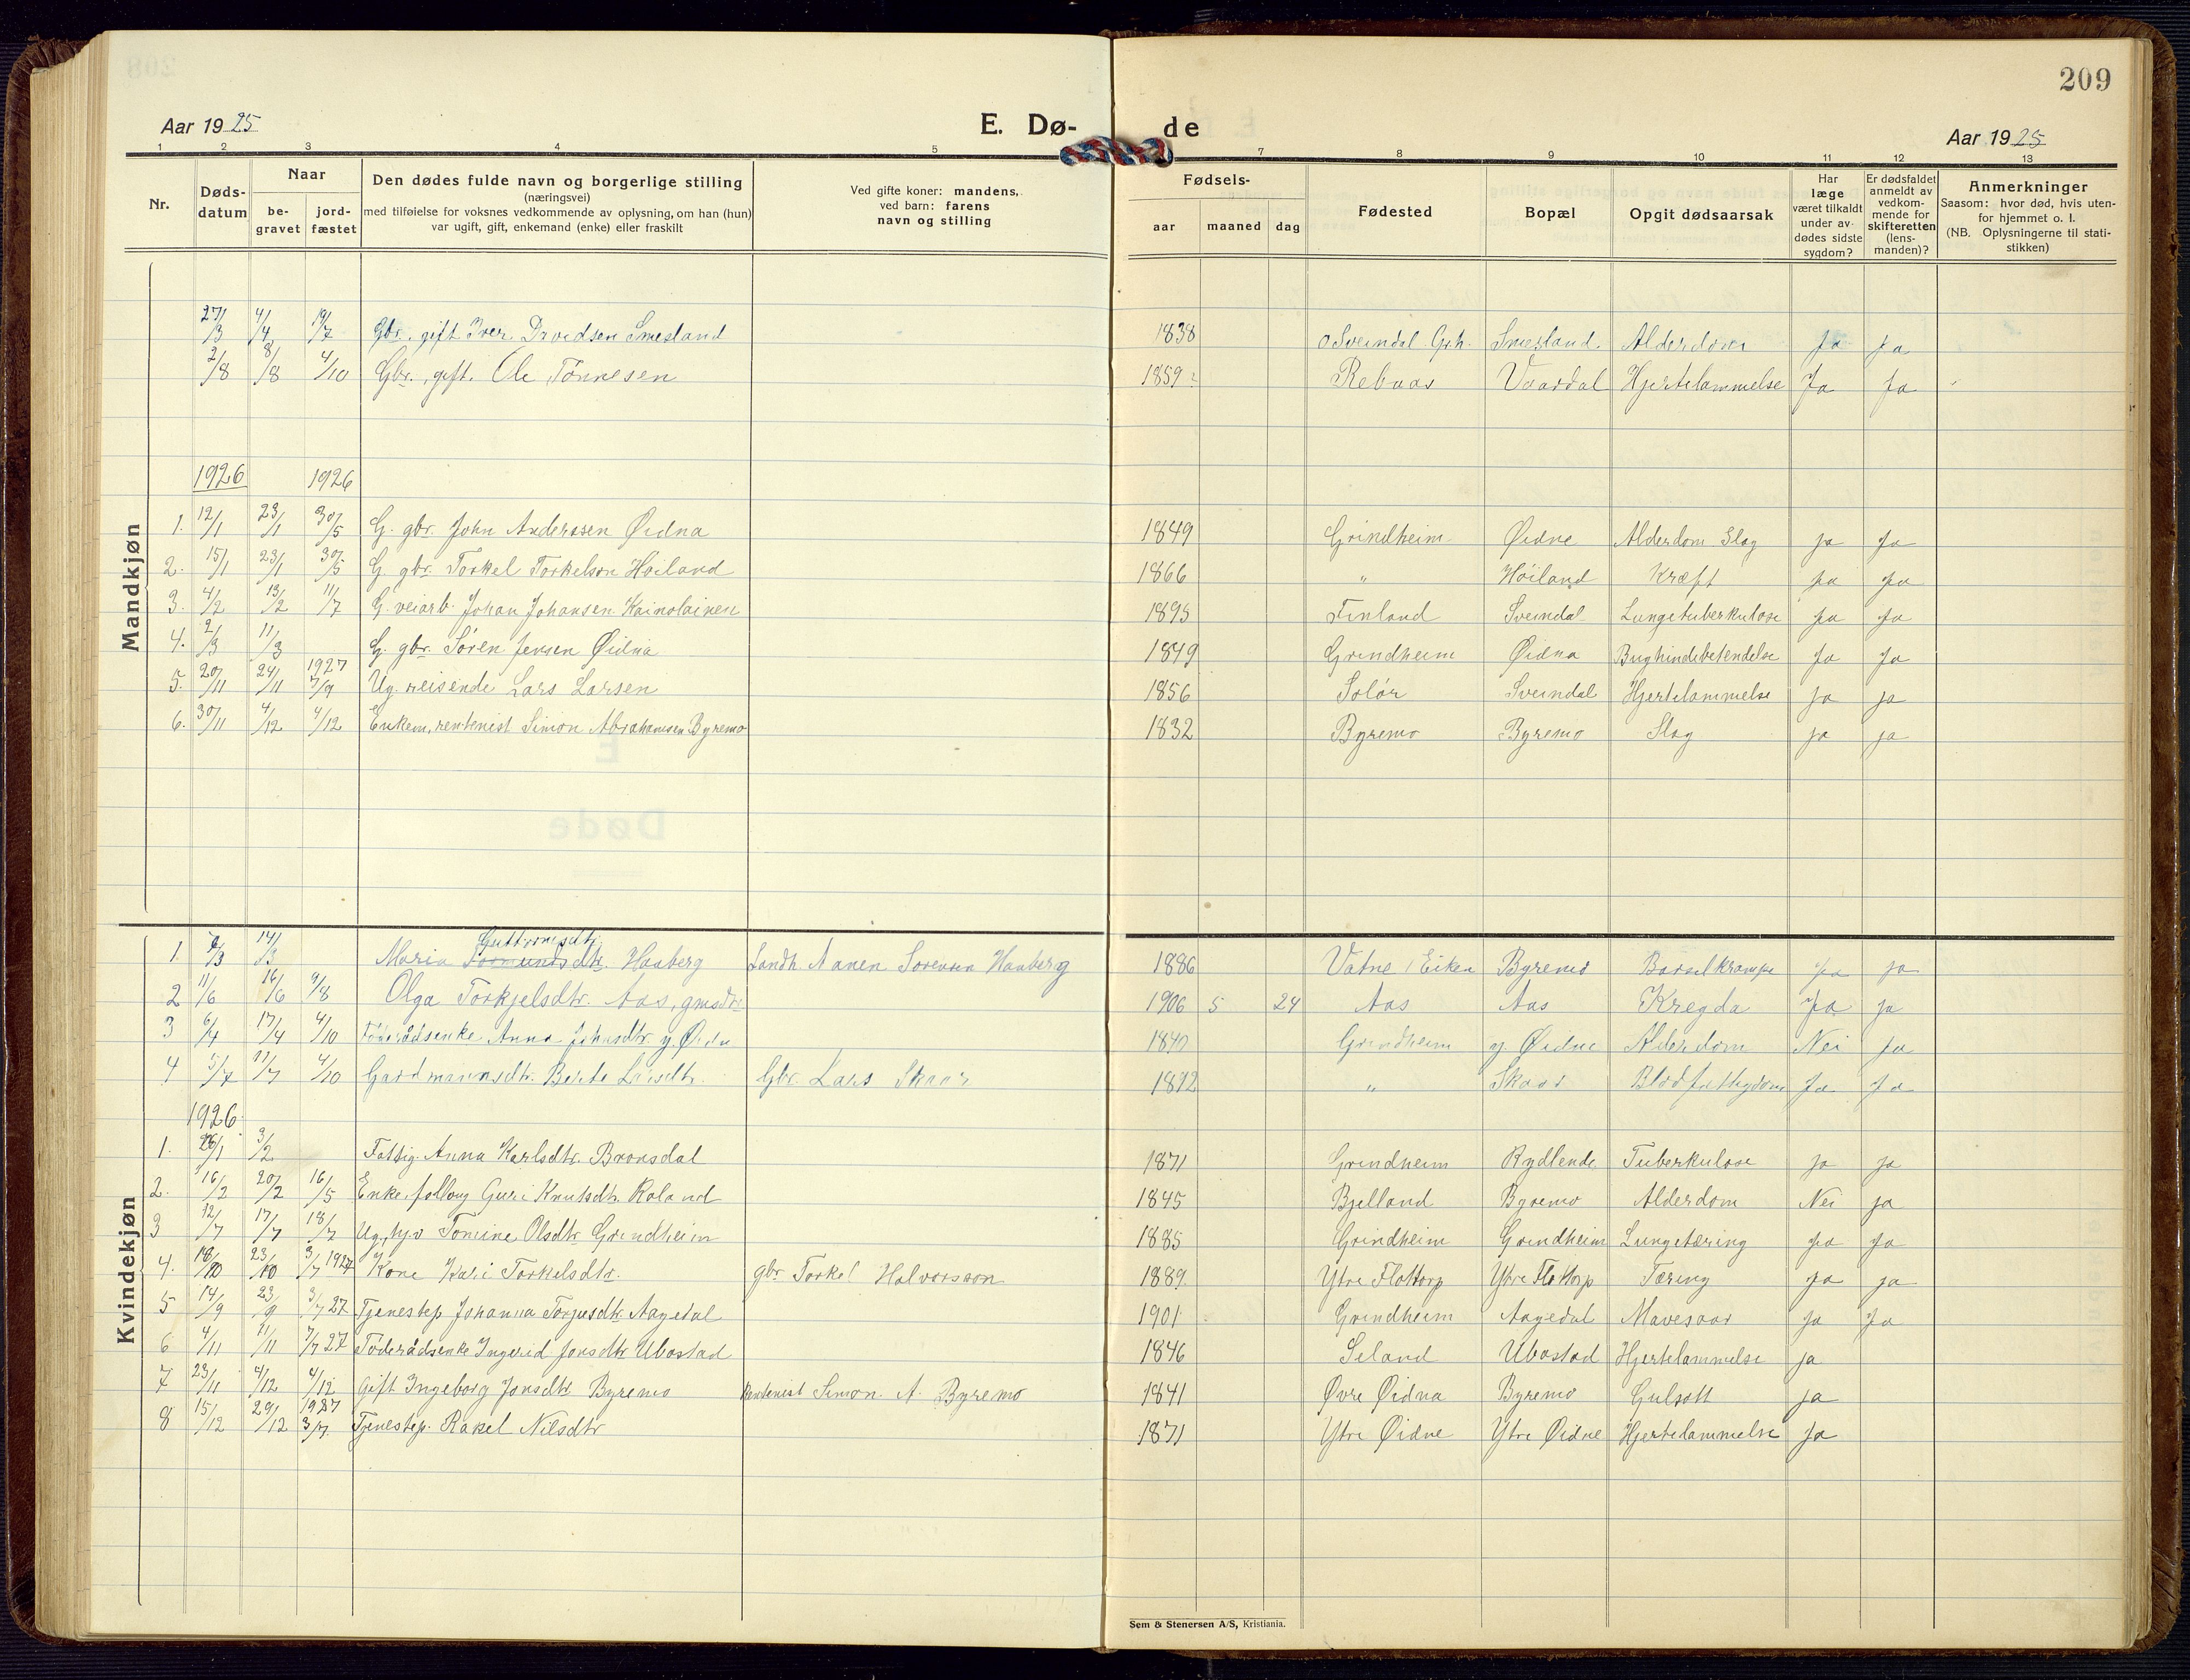 209
Aar 1925 E. Dø- de Aar 1925
1 2 3 4 5 7 8 9 10 11 12 13
Nr.
Døds-
datum
Naar
be-
gravet
jord-
fæstet
Den dødes fulde navn og borgerlige stilling
(næringsvei)
med tilføielse for voksnes vedkommende av oplysning, om han (hun)
var ugift, gift, enkemand (enke) eller fraskilt
Ved gifte koner: mandens,
ved barn: farens
navn og stilling
Fødsels-
aar maaned dag
Fødested
Bopæl
Opgit dødsaarsak
Har
læge
været tilkaldt
under av-
dødes sidste
sygdom?
Er dødsfaldet
anmeldt av
vedkom-
mende for
skifteretten
(lens-
manden)?
Anmerkninger
Saasom: hvor død, hvis uten-
for hjemmet o. l.
(NB. Oplysningerne til stati-
stikken)
Mandkjøn
27/3 4/4 19/7 Gbr. gift Iver Davidsen Smesland 1838 Sveindal Grh. Smesland Alderdom Ja Ja
2/8 8/8 4/10 Gbr. gift. Ole Tönnesen 1859 Vaardal Hjertelammelse Ja Ja
1926 1926
1. 12/1 23/1 30/5 G. gbr. John Anderssen Øidna 1849 Grindheim Øidne Alderdom Slag Ja Ja
2. 15/1 23/1 30/5 G. gbr. Torkel Torkelson Høiland 1866 " Höiland Kræft Ja Ja
3. 4/2 13/2 11/7 G. veiarb. Johan Johansen Kainolainen 1895 Finland Sveindal Lungetuberkulose Ja Ja
4. 2/3 11/3 G. gbr. Søren Jensen Øidna 1849 Grindheim Øidna Bughindebetendelse Ja Ja
5. 20/11 24/11 1927 7/9 Ug. reisende Lars Larsen 1856 Solør Sveindal Hjertelammelse Ja Ja
6. 30/11 4/12 4/12 Enkem. rentenist Simon Abrahamsen Byremo 1832 Byremo Byremo Slag ja ja
Kvindekjøn
Guttormsdtr.
1. 7/3 14/3 Maria Haaberg Landh. Aanen Sorensen Haaberg 1886 Vatne i Eiken Byremo Barselkrampe Ja Ja
2 11/6 16/6 9/8 Olga Torkjelsdtr. Aas, gmsdtr. 1906 5 24 Aas Aas Kregda Ja Ja
3 6/4 17/4 4/10 Föderådsenke Anna Johnsdtr. y. Øidn 1840 Grindheim y. Øidne Alderdom Nei Ja
4 5/7 11/7 4/10 Gardmannsdtr. Berte Larsdtr. Gbr. Lars Skaar 1892 " Skaar Blodfattigdom Ja Ja
1926
1. 26/1 3/2 Fattig. Anna Karlsdtr. Bronsdal 1871 Grindheim Rydlende Tuberkulose ja ja
2. 16/2 20/2 16/5 Enke Guri Knutsdtr. Roland 1845 Bjelland Byremo Alderdom Nei ja
3 12/7 17/7 18/7 Ug. Tomine Olsdtr Grindheim 1885 Grindheim Grindheim Lungetæring Ja Ja
4. 18/10 23/10 3/7 1927 Kone Kari Torkelsdtr. gbr Torkel Halvorsson 1889 Ytre Flottorp Ytre Flottorp Tæring ja ja
5 14/9 23/9 3/7 27 Tjenestep. Johanna Torjusdtr. Aagedal 1901 Grindheim Aagedal Mavesaar ja Ja
6 4/11 11/11 7/7 27 Föderådsenke Ingerid Jonsdtr. Ubostad 1846 Seland Ubostad Hjertelammelse ja
7 23/11 4/12 4/12 Gift Ingeborg Jonsdtr Byremo Rentenist Simon A. Byremo 1841 Øvre Øidna Byremo Gulsott ja
8 15/12 29/12 1927 3/7 Tjenestep. Rakel Nilsdtr 1871 Ytre Øidne Ytre Øidne Hjertelammelse Ja
Sem & Stenersen A/S, Kristiania.